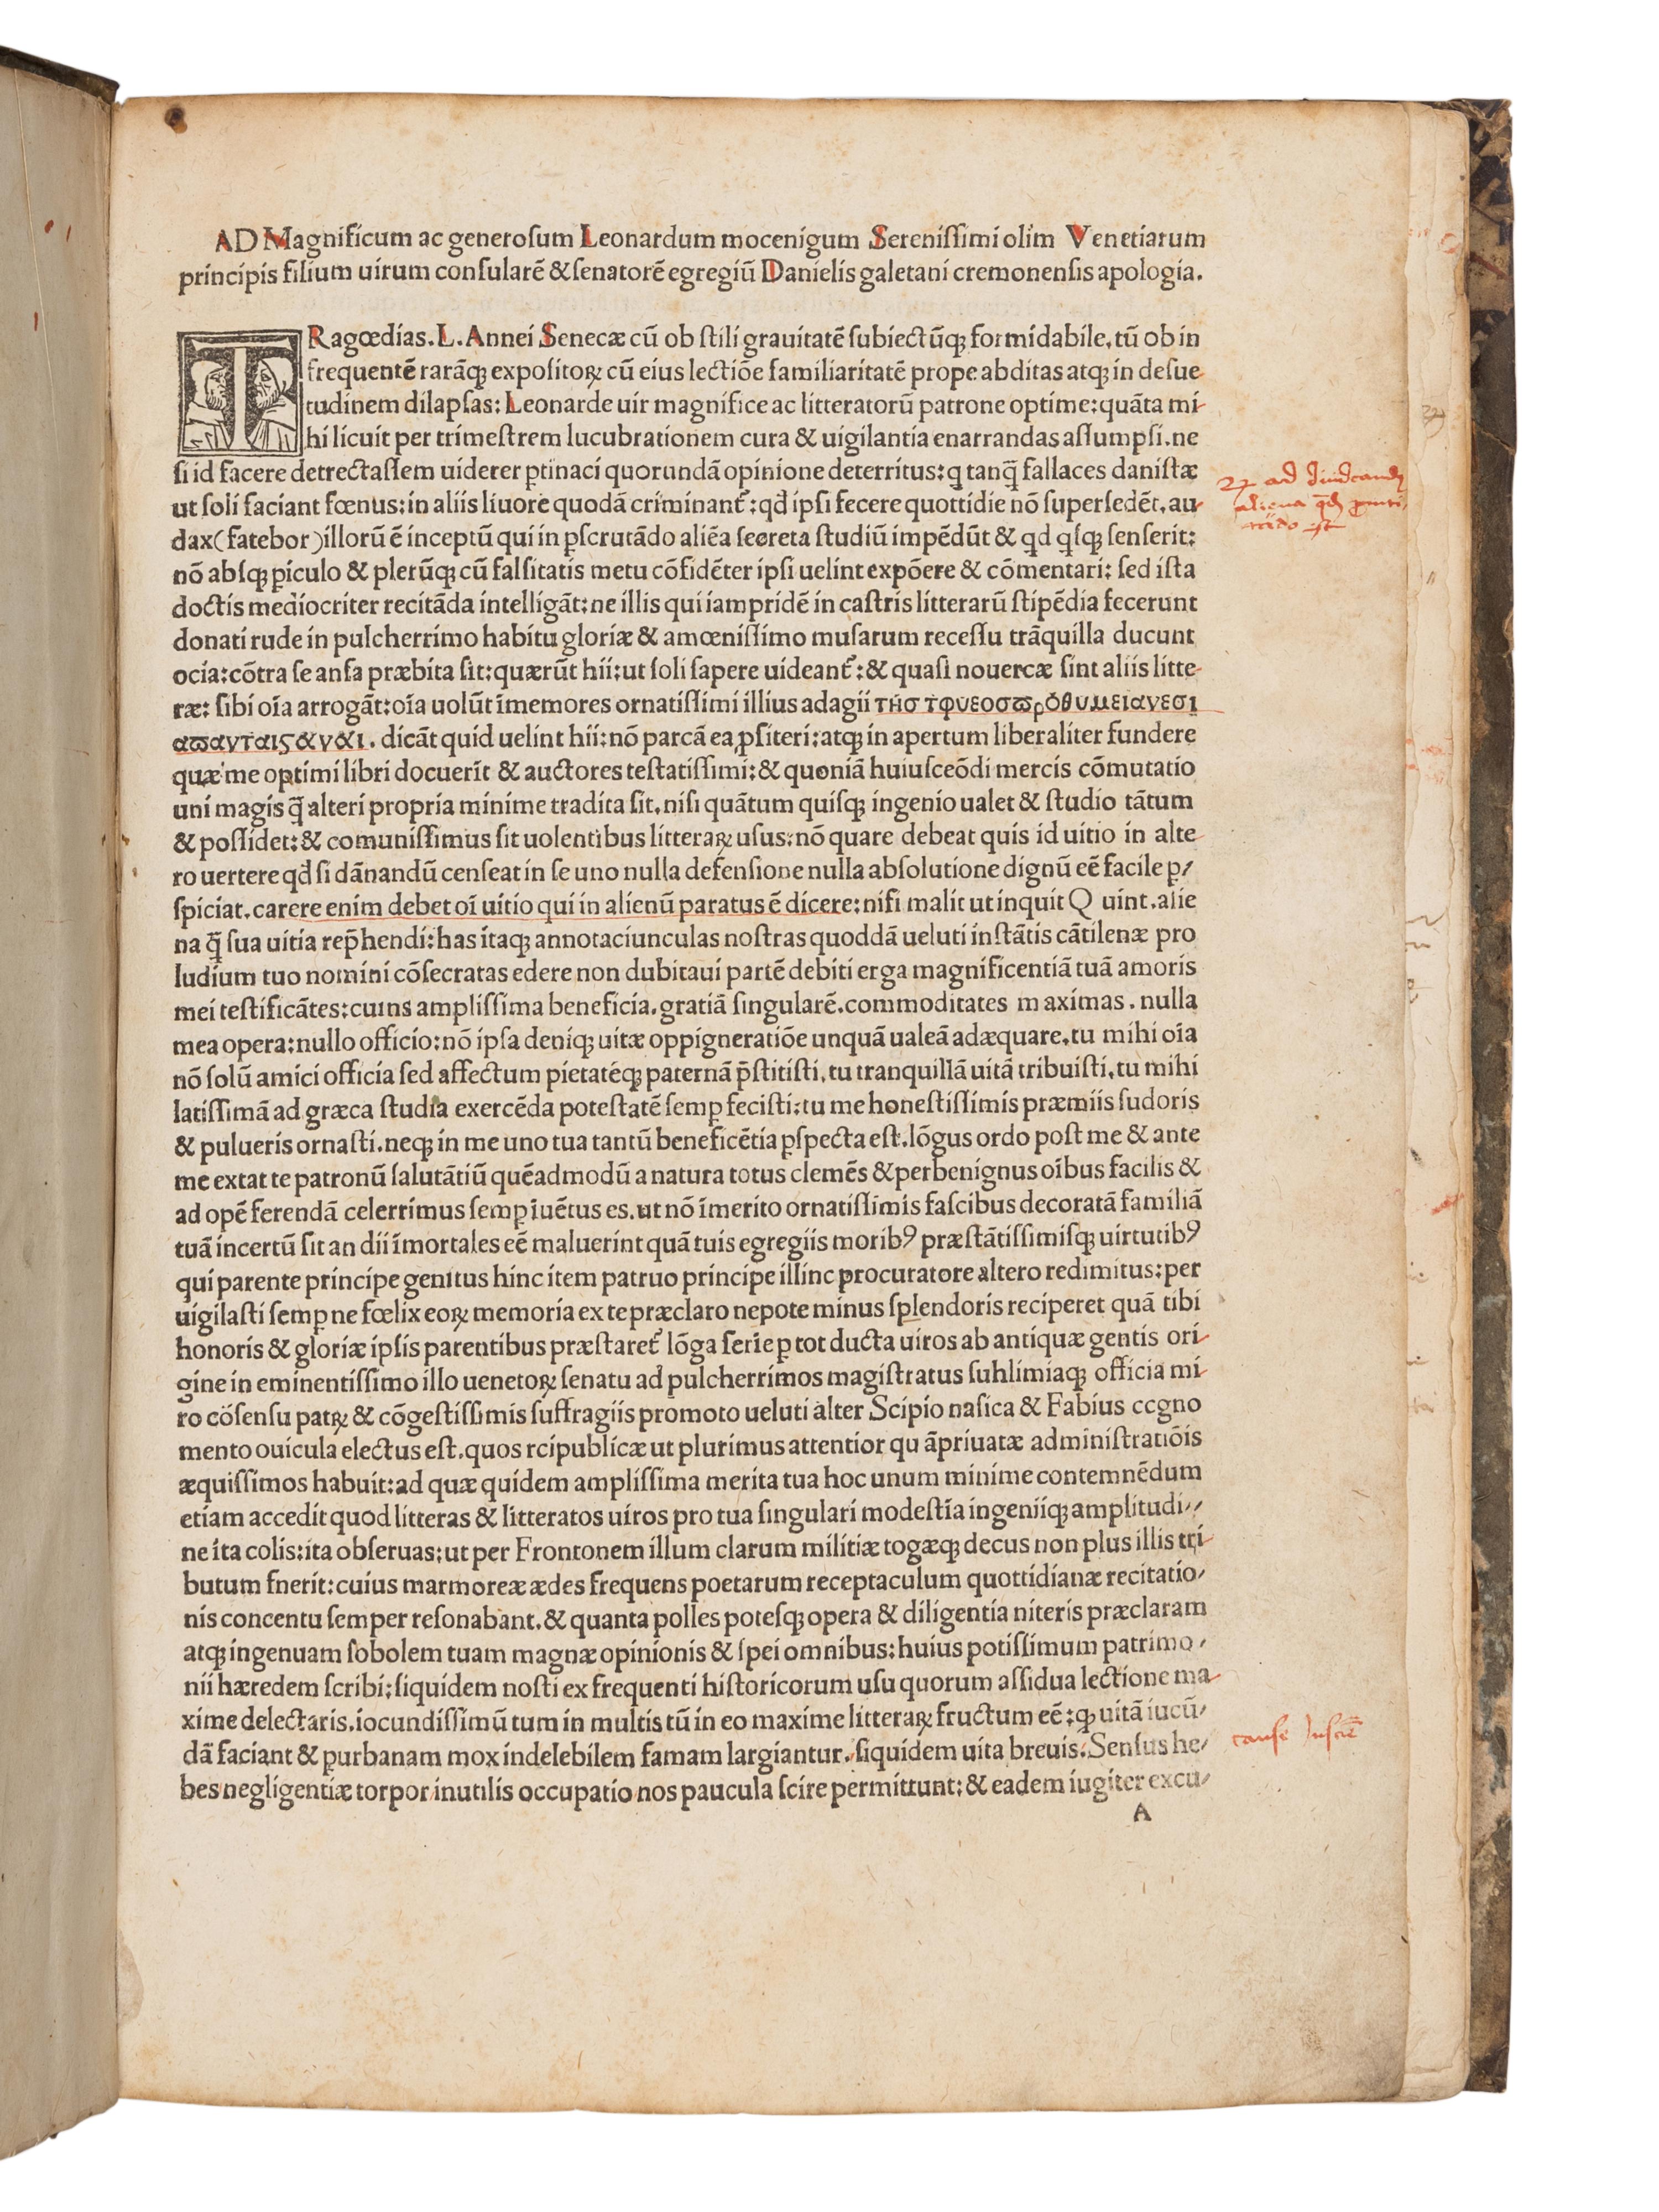 AD Magnificum ac generosum Leonardum mocenigum Serenissimi olim Venetiarum
principis filium uirum consularē & senatorē egregiū Danielis galetani cremonensis apologia.
TRagœdias. L. Annei Senecæ cū ob stili grauitatē subiectūqꝫ formidabile, tū ob in
frequentē rarāqꝫ expositoꝝ cū eius lectiōe familiaritatē prope abditas atqꝫ in desue-
tudinem dilapsas: Leonarde uir magnifice ac litteratorū patrone optime: quāta mi-
hi licuit per trimestrem lucubrationem cura & uigilantia enarrandas assumpsi. ne
si id facere detrectassem uiderer ꝑtinaci quorundā opinione deterritus: q tanq̄ fallaces danistæ
ut soli faciant fœnus: in aliis liuore quodā criminant᷑: qd ipsi fecere quottidie nō supersedēt, au-
dax (fatebor) illorū ē inceptū qui in ꝑscrutādo aliēa secreta studiū impēdūt & qd qsqꝫ senserit:
nō absqꝫ ꝑiculo & plerūqꝫ cū falsitatis metu cōfidēter ipsi uelint expōere & cōmentari: sed ista
doctis mediocriter recitāda intelligāt: ne illis qui iampridē in castris litterarū stipēdia fecerunt
donati rude in pulcherrimo habitu gloriæ & amœnissimo musarum recessu trāquilla ducunt
ocia: cōtra se ansa præbita sit: quærūt hii: ut soli sapere uideant᷑: & quasi nouercæ sint aliis litte-
ræ: sibi oīa arrogāt: oīa uolūt īmemores ornatissimi illius adagii τησ τφυεοσ ϖρόθυμειανεσι
αϖανταιςάνάι. dicāt quid uelint hii: nō parcā ea ꝓfiteri: atqꝫ in apertum liberaliter fundere
quæ me optimi libri docuerīt & auctores testatissimi: & quoniā huiusceōdi mercis cōmutatio
uni magis q̄ alteri propria minime tradita sit, nisi quātum quisqꝫ ingenio ualet & studio tātum
& possidet: & comunissimus sit uolentibus litteraꝝ usus: nō quare debeat quis id uitio in alte-
ro uertere qd si dānandū censeat in se uno nulla defensione nulla absolutione dignū eē facile ꝑ/
spiciat. carere enim debet oī uitio qui in alienū paratus ē dicere: nisi malit ut inquit Q uint. alie
na q̄ sua uitia rep̄hendi: has itaqꝫ annotaciunculas nostras quoddā ueluti instātis cātilenæ pro
ludium tuo nomini cōsecratas edere non dubitaui partē debiti erga magnificentiā tuā amoris
mei testificātes: cuins amplissima beneficia, gratiā singularē, commoditates maximas. nulla
mea opera: nullo officio: nō ipsa deniqꝫ uitæ oppigneratiōe unquā ualeā adæquare, tu mihi oīa
nō solū amici officia sed affectum pietatéqꝫ paternā p̄stitisti, tu tranquillā uitā tribuisti, tu mihi
latissimā ad græca studia exercēda potestatē semꝑ fecisti: tu me honestissimis præmiis sudoris
& pulueris ornasti. neqꝫ in me uno tua tantū beneficētia ꝑspecta est. lōgus ordo post me & ante
me extat te patronū salutātiū quēadmodū a natura totus clemēs & perbenignus oībus facilis &
ad opē ferendā celerrimus semꝑ iuētus es. ut nō īmerito ornatissimis fascibus decoratā familiā
tuā incertū sit an dii īmortales eē maluerint quā tuis egregiis moribꝰ præstātissimisqꝫ uirtutibꝰ
qui parente principe genitus hinc item patruo principe illinc procuratore altero redimitus: per
uigilasti semꝑ ne fœlix eoꝝ memoria ex te præclaro nepote minus splendoris reciperet quā tibi
honoris & gloriæ ipsis parentibus præstaret᷑ lōga serie ꝑ tot ducta uiros ab antiquæ gentis ori-
gine in eminentissimo illo uenetoꝝ senatu ad pulcherrimos magistratus suhlimiaqꝫ officia mi-
ro cōsensu patꝝ & cōgestissimis suffragiis promoto ueluti alter Scipio nasica & Fabius ccgno
mento ouicula electus est. quos rcipublicæ ut plurimus attentior qu āpriuatæ administratiōis
æquissimos habuit: ad quæ quidem amplissima merita tua hoc unum minime contemnēdum
etiam accedit quod litteras & litteratos uiros pro tua singulari modestia ingeniiqꝫ amplitudi//
ne ita colis: ita obseruas: ut per Frontonem illum clarum militiæ togæqꝫ decus non plus illis tri-
butum fnerit: cuius marmoreæ ædes frequens poetarum receptaculum quottidianæ recitatio/
nis concentu semper resonabant. & quanta polles potesqꝫ opera & diligentia niteris præclaram
atqꝫ ingenuam sobolem tuam magnæ opinionis & spei omnibus: huius potissimum patrimo/
nii hæredem scribi: siquidem nosti ex frequenti historicorum usu quorum assidua lectione ma-
xime delectaris, iocundissimū tum in multis tū in eo maxime litteraꝝ fructum eē: qꝫ uitā iucū/
dā faciant & ꝑurbanam mox indelebilem famam largiantur. siquidem uita breuis: Sensus he/
bes negligentiæ torpor inutilis occupatio nos paucula scire permittunt: & eadem iugiter excu/
A